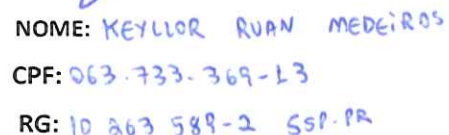 NOME: KEYLLOR RUAN MEDEIROS
CPF: 063.733.369-13
RG: 10 263 589-2 SSP.PR